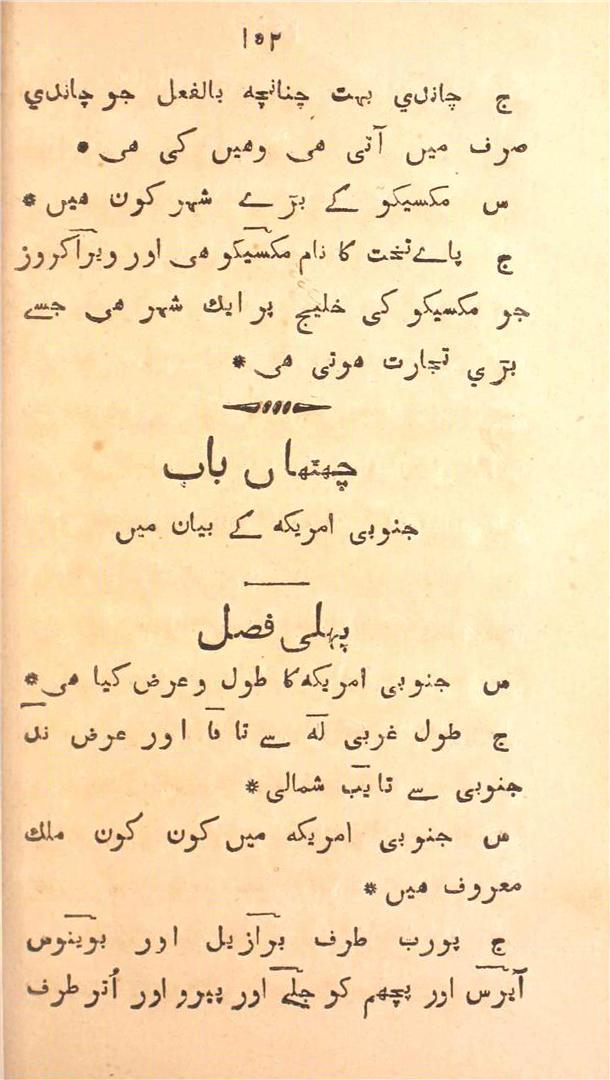 ۱۵۲
ج چاندي بہت چنانچہ بالفعل جو چاندي
صرف میں آتی هی وهیں کی هی *
س مکسیکو کے بڑے شہر کون هیں *
ج پاے تخت کا نام مکسیکو هی اور ویراکروز
جو مکسیکو کی خلیج پر ایك شہر هی جسے
بڑي تجارت هوتی هی *
چھٹھاں باب
جنوبی امریکہ کے بیان میں
پہلی فصل
س جنوبی امریکہ کا طول و عرض کیا هی *
ج طول غربی لہ سے تا فا اور عرض ند
جنوبی سے تا یب شمالی *
س جنوبی امریکہ میں کون کون ملك
معروف هیں *
ج پورب طرف برازیل اور بوینوس
آیرس اور پچھم کو چلے اور پیرو اور اُتر طرف